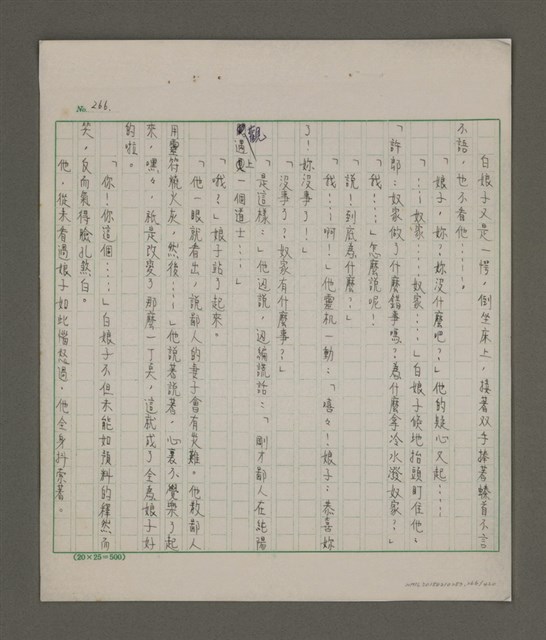 No. 266.
白娘子又是一愕，倒坐床上，接著双手捧著螓首不言
不語，也不看他……。
「娘子，妳？妳没什麼吧？」他的疑心又起……
「……奴家……奴家……」白娘子倏地抬頭盯住他，
「許郎：奴家做了什麼錯事嗎？為什麼拿冷水潑奴家？」
「我……」怎麼說呢！
「說！到底為什麼？」
「我……啊！」他靈机一動：「嘻々！娘子：恭喜妳
了！妳沒事了！」
「沒事了？奴家有什麼事？」
「是這樣：」他边說，边编謊話：「剛才鄙人在純陽
觀遇上一個道士……」
「哦？」娘子站了起來。
「他一眼就看出，說鄙人的妻子會有災難。他教鄙人
用靈符燒火灰，然後……」他說著說著，心裏不覺樂了起
來，嘿々，祇是改变了那麼一丁美，這就成了全為娘子好
的啦。
「你！你這個……」白娘子不但未能如預料的釋然而
笑，反而氣得臉孔煞白。
他，從未看過娘子如此憤怒過，他全身抖索著。
(20×25=500)